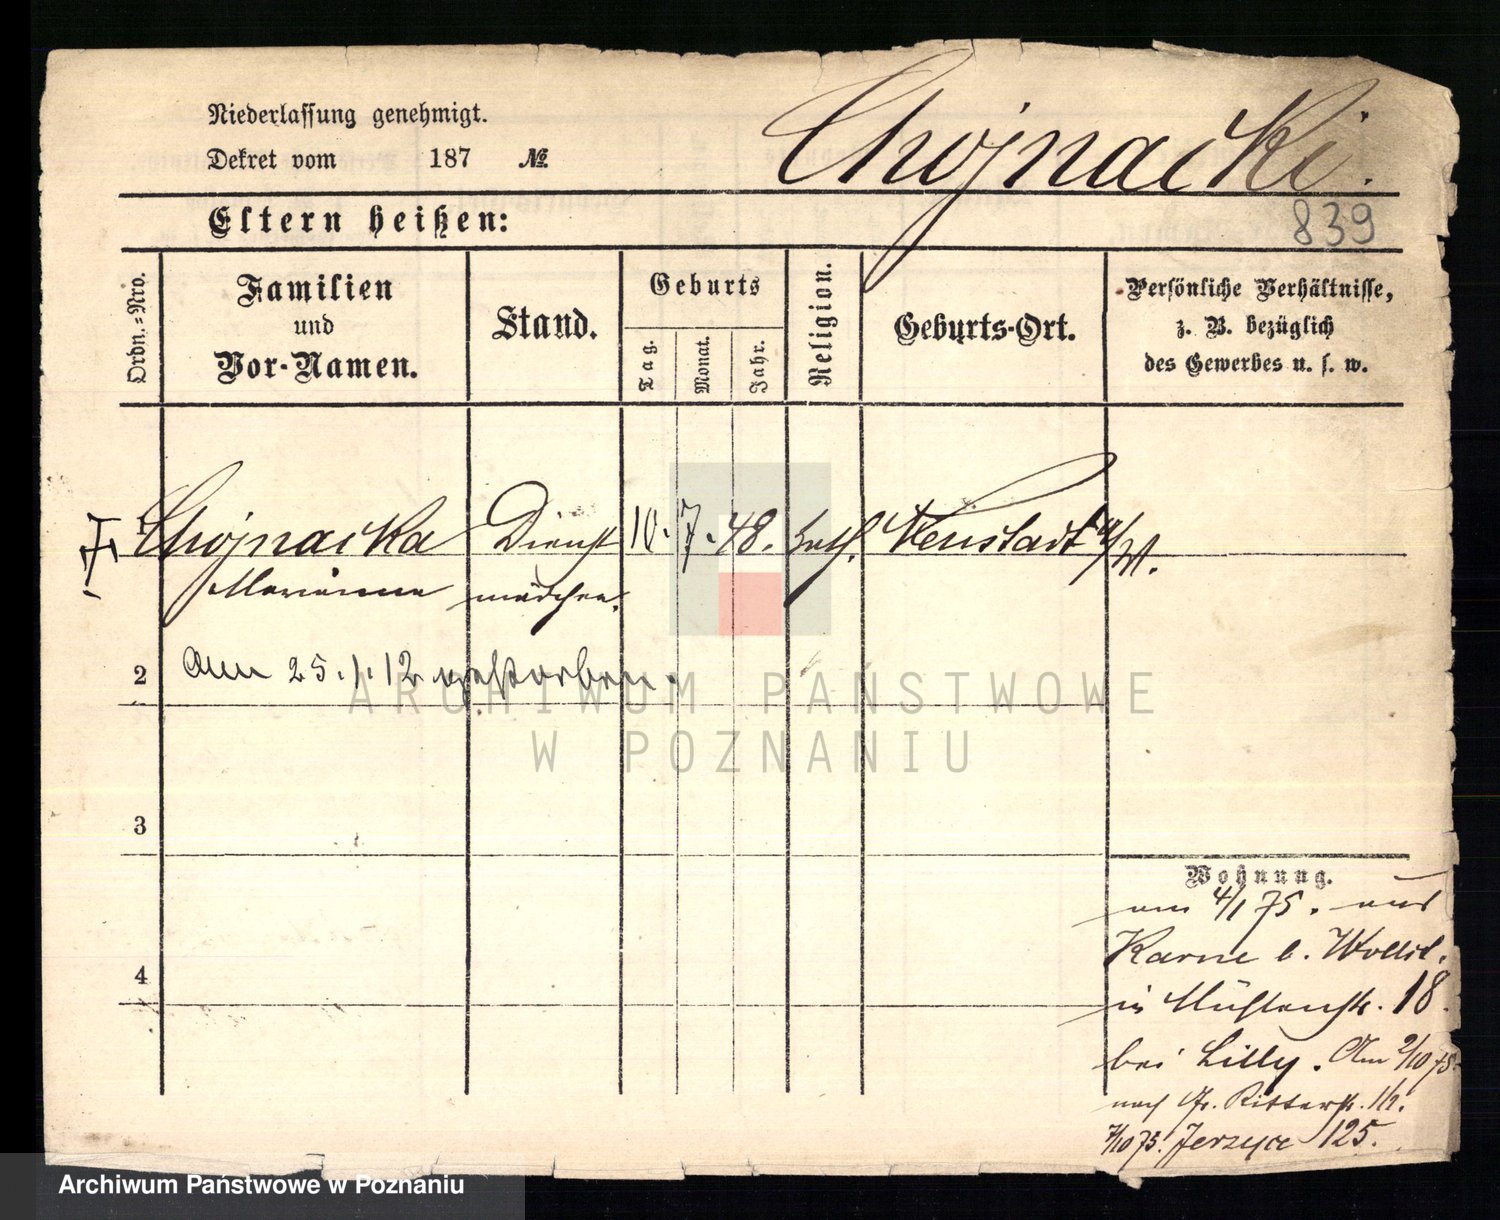 Niederlassung genehmigt.
Dekret vom 187 №
Chojnacki.
Eltern heißen:
839
Ordn.-Nro.
Familien
und
Vor-Namen.
Stand.
Geburts
Tag.
Monat.
Jahr.
Religion.
Geburts-Ort.
Persönliche Verhältnisse,
z. B. bezüglich
des Gewerbes u. s. w.
Chojnacka Dienst 10. 7. 48. kath. Neustadt a/W.
Marianna mädchen.
2 Am 25.1.12 gestorben.
3
4
Wohnung.
am 4/1 75. aus
Karne b. Wollst.
in Mühlenstr. 18.
bei Lilly. Am 2/10 75
nach Gr. Ritterstr. 1/2.
7/10 75. Jerzyce 125.
ARCHIWUM PAŃSTWOWE
W POZNANIU
Archiwum Państwowe w Poznaniu